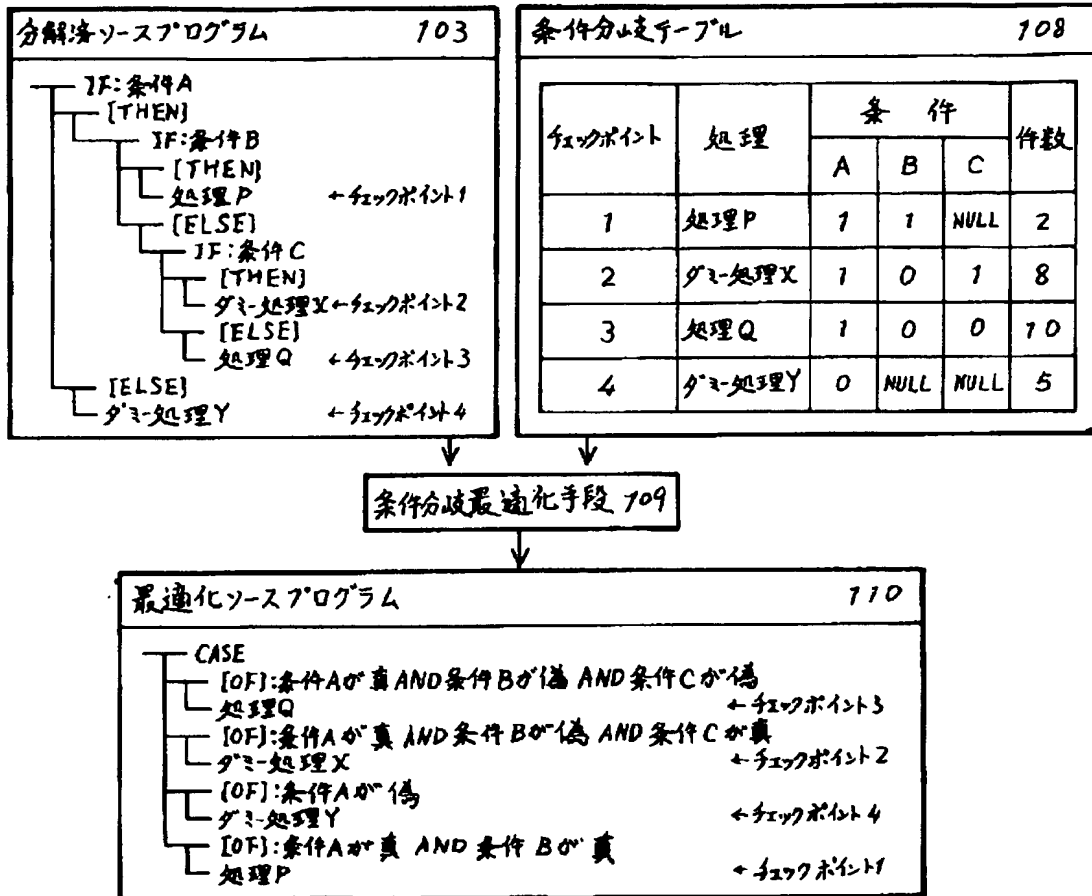 分解済ソースプログラム 103
IF:条件A
[THEN]
IF:条件B
[THEN]
処理P ←チェックポイント1
[ELSE]
IF:条件C
[THEN]
ダミー処理X ←チェックポイント2
[ELSE]
処理Q ←チェックポイント3
[ELSE]
ダミー処理Y ←チェックポイント4
条件分岐テーブル 108
チェックポイント 処理 条件 件数
A B C
1 処理P 1 1 NULL 2
2 ダミー処理X 1 0 1 8
3 処理Q 1 0 0 10
4 ダミー処理Y 0 NULL NULL 5
条件分岐最適化手段 109
最適化ソースプログラム 110
CASE
[OF]:条件Aが真AND条件Bが偽 AND条件Cが偽
処理Q ←チェックポイント3
[OF]:条件Aが真 AND条件Bが偽 AND条件Cが真
ダミー処理X ←チェックポイント2
[OF]:条件Aが偽
ダミー処理Y ←チェックポイント4
[OF]:条件Aが真 AND 条件Bが真
処理P ←チェックポイント1